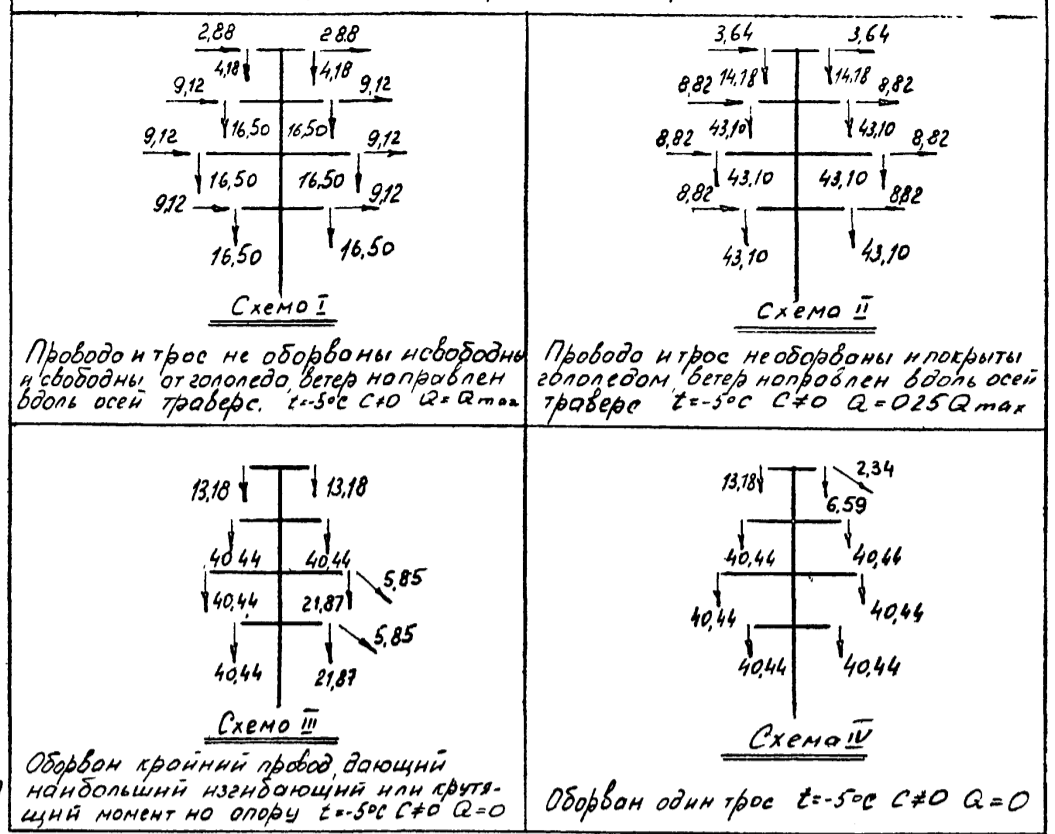 2,88 28.8
4,18 4,18
9,12 9,12
16,50 16,50
9,12 9,12
16,50 16,50
9,12 9,12
16,50 16,50
Схема I
Провода и трос не оборваны исвободны
и свободны от гололеда, ветер направлен
вдоль осей траверс. t=-5°C C≠0 Q=Qmax
3,64 3,64
14,18 14,18
8,82 8,82
43,10 43,10
8,82 8,82
43,10 43,10
8,82 8,82
43,10 43,10
Схема II
Провода и трос не оборваны и покрыты
гололедом, ветер направлен вдоль осей
траверс t=-5°C C≠0 Q=025Qmax
13,18 13,18
40,44 40,44
5,85
40,44 21,87
5,85
40,44 21,87
Схема III
Оборван крайний провод, дающий
наибольший изгибающий или крутя-
щий момент на опору t=-5°C C≠0 Q=0
2,34
13,18 6,59
40,44 40,44
40,44 40,44
40,44 40,44
Схема IV
Оборван один трос t=-5°C C≠0 Q=0